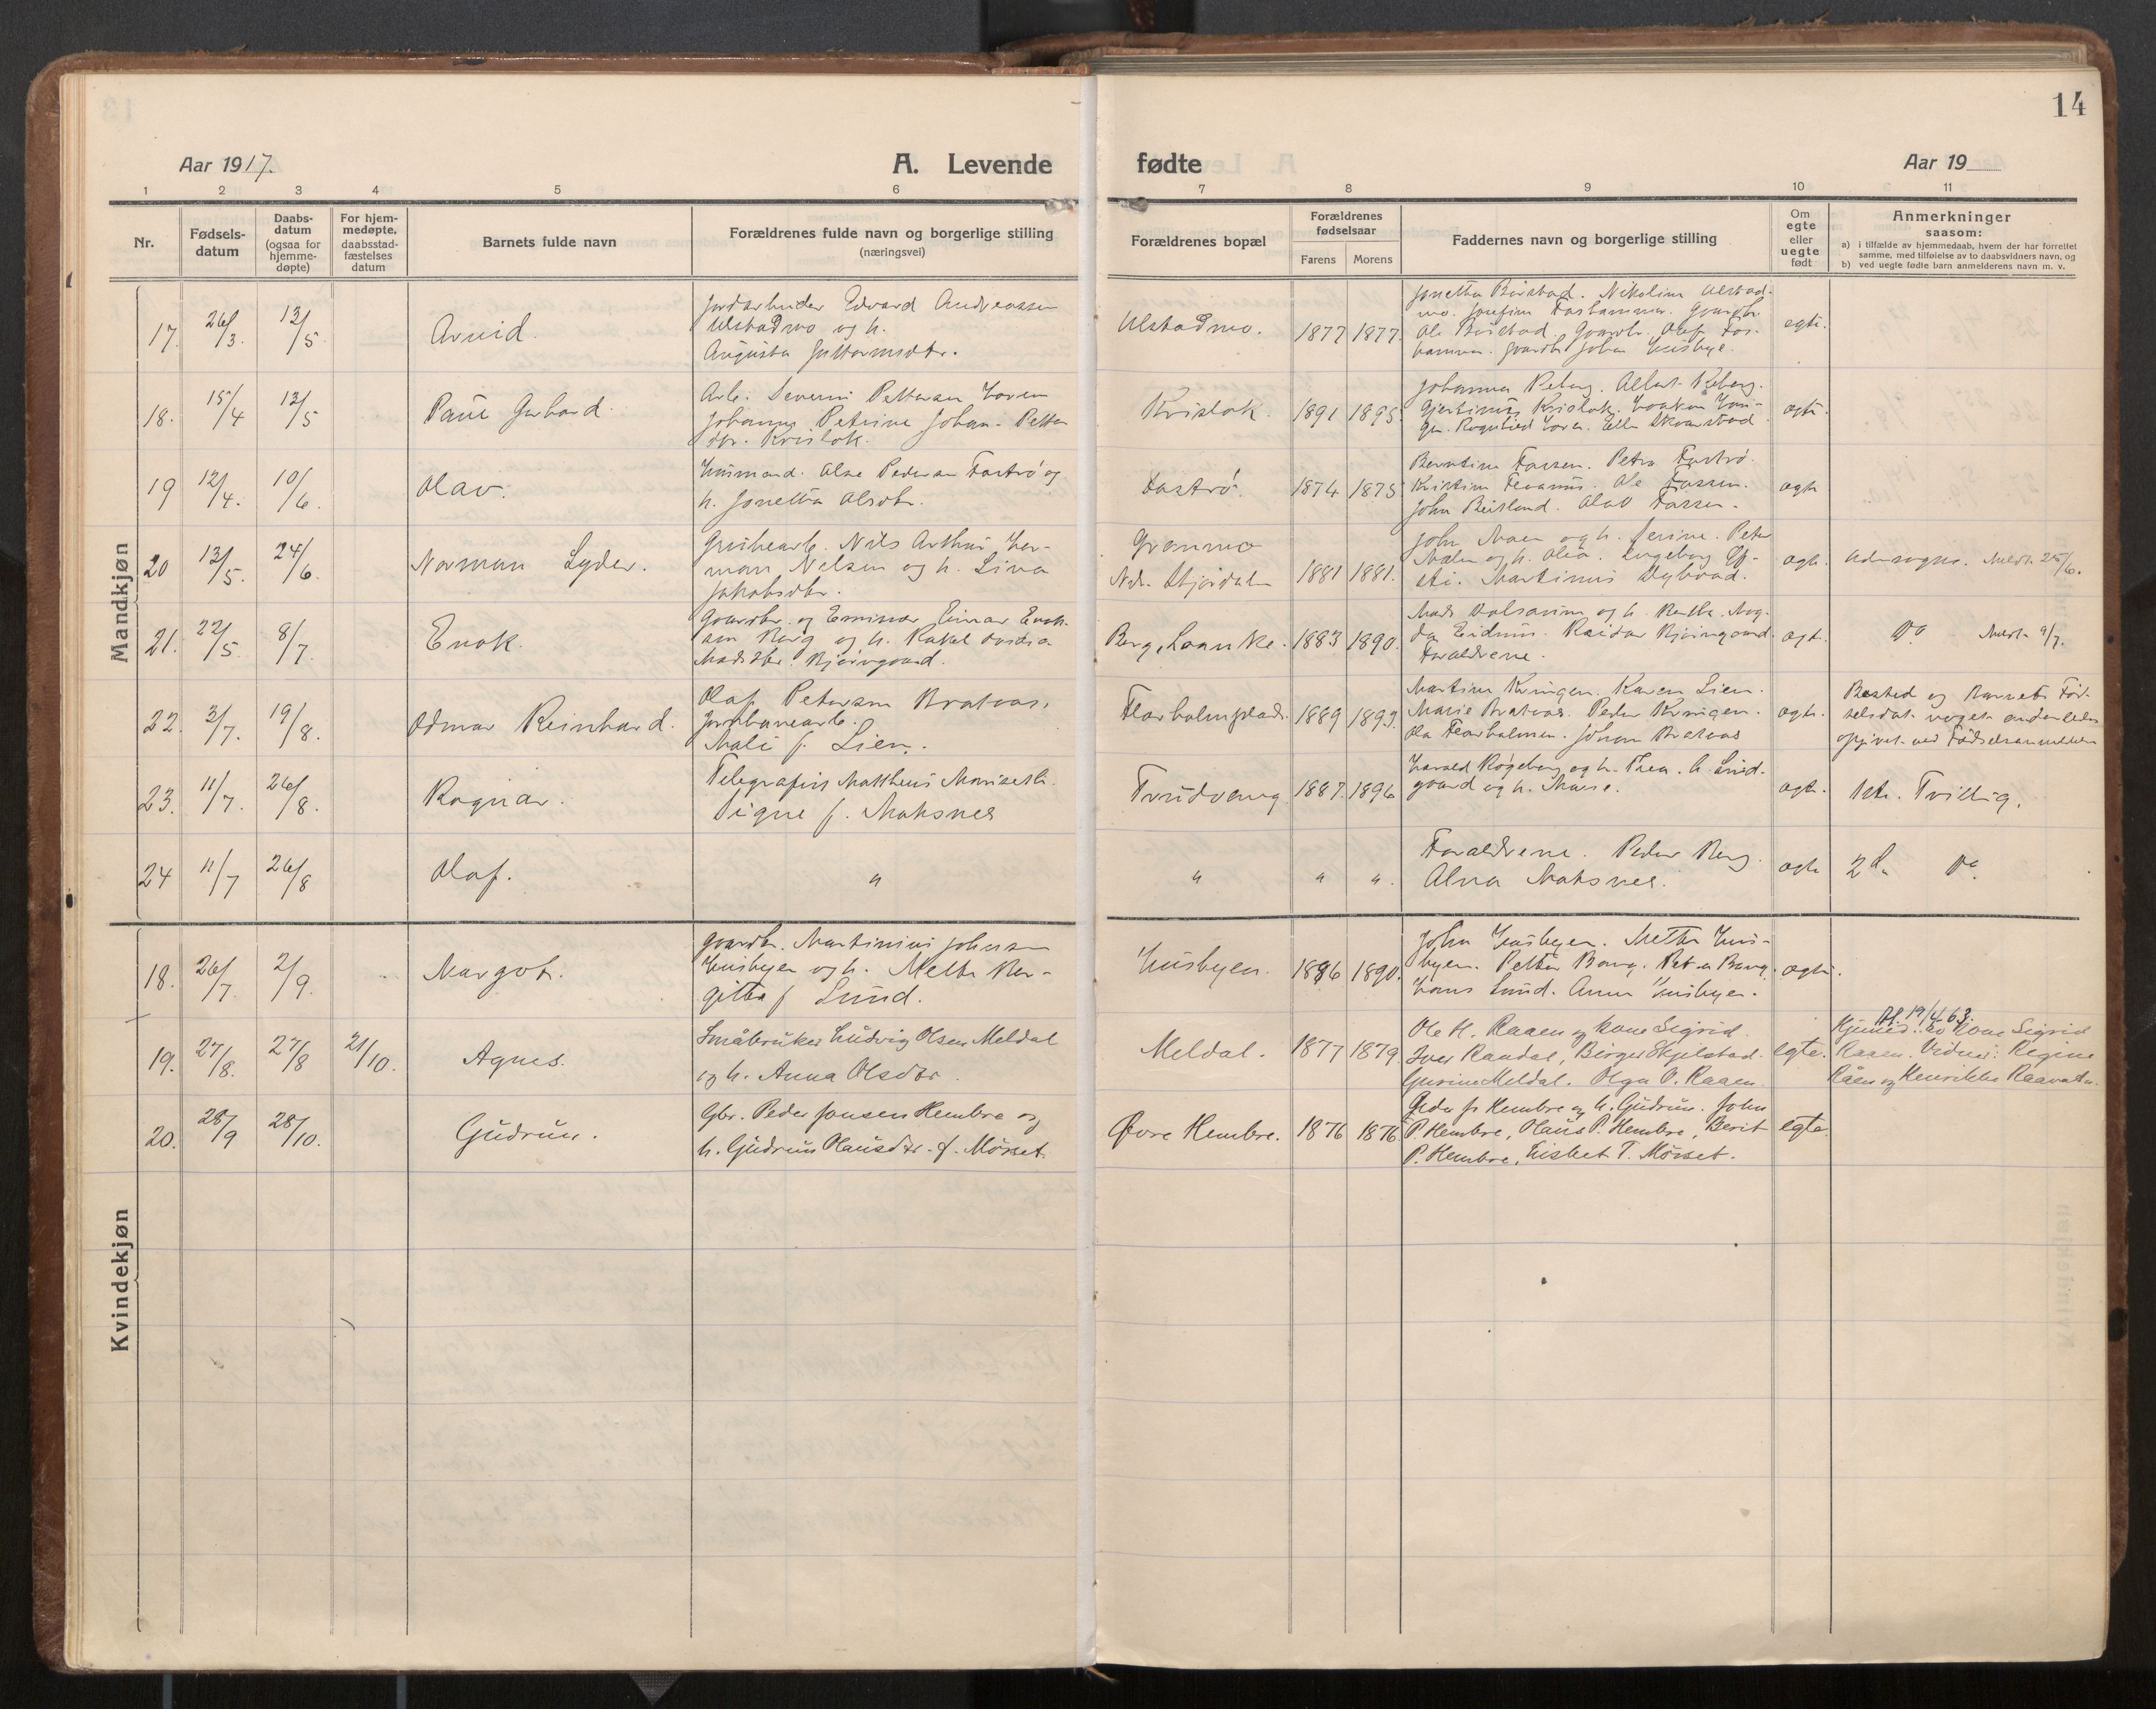 14
Aar 1917.
A. Levende
fødte
Aar 19
1 2 3 4 5 6 7 8 9 10 11
Nr.
Fødsels-
datum
Daabs-
datum
(ogsaa for
hjemme-
døpte)
For hjem-
medøpte,
daabsstad-
fæstelses
datum
Barnets fulde navn
Forældrenes fulde navn og borgerlige stilling
(næringsvei)
Forældrenes bopæl
Forældrenes
fødselsaar
Farens Morens
Faddernes navn og borgerlige stilling
Om
egte
eller
uegte
født
Anmerkninger
saasom:
a) i tilfælde av hjemmedaab, hvem der har forrettet
samme, med tilføielse av to daabsvidners navn, og
b) ved uegte fødte barn anmelderens navn m. v.
Mandkjøn
17. 26/3. 13/5
Arvid.
Jordarbeider Edvard Andreassen
Ulstadmo og h.
Augusta Guttormsdtr.
Ulstadmo. 1877 1877.
Ole Beistad. Gaardbr. Olaf
Gaardbr. Johan Husbye.
egte.
18. 15/4 13/5
Paul Gerhard.
Arb. Severin Pettersen Hoven
Johanna Petrine Johan- Petter
dtr. Krislok.
Krislok. 1891 1895.
egte.
19 12/4. 10/6.
Olav.
Husmand. Olae Pedersen Fastrø og
h. Jonetta Olsdtr.
Fastrø. 1874 1875
Berntine Fossen. Petra Fastrø.
Kristine Ole Fossen.
John Olav Fossen.
egte
20 13/5. 24/6.
Norman Lyder.
Grubearb. Nils Arthur Her-
man Nelsen og h. Lina
Jakobsdtr.
Gramme
Ndr. Stjørdalen 1881 1881.
John Moen og h. Serine. Peter
og h. Olea. Ingeborg
Martinus
egte. Udensogns. Meldt 25/6.
21. 22/5 8/7.
Enok.
Gaardbr. og Eminar Einar Enok-
sen Berg og h. Rakel
Madsdtr. Bjørngaard.
Berg, Laanke. 1883 1890.
Mads og h. Berthe. Mag-
da Eidum. Reidar Bjørngaard.
Forældrene.
egte. Do Meldt 9/7.
22. 3/7. 19/8.
Odmar Reinhard.
Olaf Petersen Brataas,
Jernbanearb.
Mali f. Lien.
Florholmplads. 1889 1893.
Martine Kringen. Karen Lien.
Marie Brataas. Peder Kringen.
Ola Florholmen. Johan Brataas
egte.
Bosted og Barnets Fød-
selsdat. noget anderledes
opgivet ved Fødselsanmeldelsen
23. 11/7. 26/8.
Ragnar.
Telegrafist Mattheus Moniseth.
Signe f. Moksnes
Trudvang 1887. 1896
Harald Røgeberg og h. Thea. h. Lund-
gaard og h. Marie.
egte. 1ste. Tvilling.
24 11/7 26/8
Olaf.
" " " ".
Forældrene. Peder Berg.
Alma Moksnes.
egte 2d. Do.
Kvindekjøn
18. 26/7 2/9.
Margot.
Gaardbr. Martinius Johnsen
Husbyen og h. Mette Ber-
gitta f. Lund.
Husbyen. 1886 1890.
John Husbyen. Mette Hus-
byen. Petter Bang. Petra Bang.
Hans Lund. Anna Husbyen.
egte.
19. 27/8. 27/8 21/10.
Agnes.
Småbruker Ludvig Olsen Meldal
og h. Anna Olsdtr.
Meldal. 1877 1879.
Ole H. Raaen og kone Sigrid.
Iver Raudal, Birger Skjelstad.
Gurine Meldal. Olga O. Raaen.
egte.
At. 19/4 63.
Hjemed. av kone Sigrid
Raaen. Vidner: Regine
Råen og Henrikke Raavatn.
20. 28/9 28/10.
Gudrun.
Gbr. Peder Jonsen Hembre og
h. Gudrun Olausdtr. f. Mørset.
Øvre Hembre. 1876 1876
Peder J. Hembre og h. Gudrun. John
P. Hembre, Olaus P. Hembre, Berit
P. Hembre, Lisbet T. Mørset.
egte.